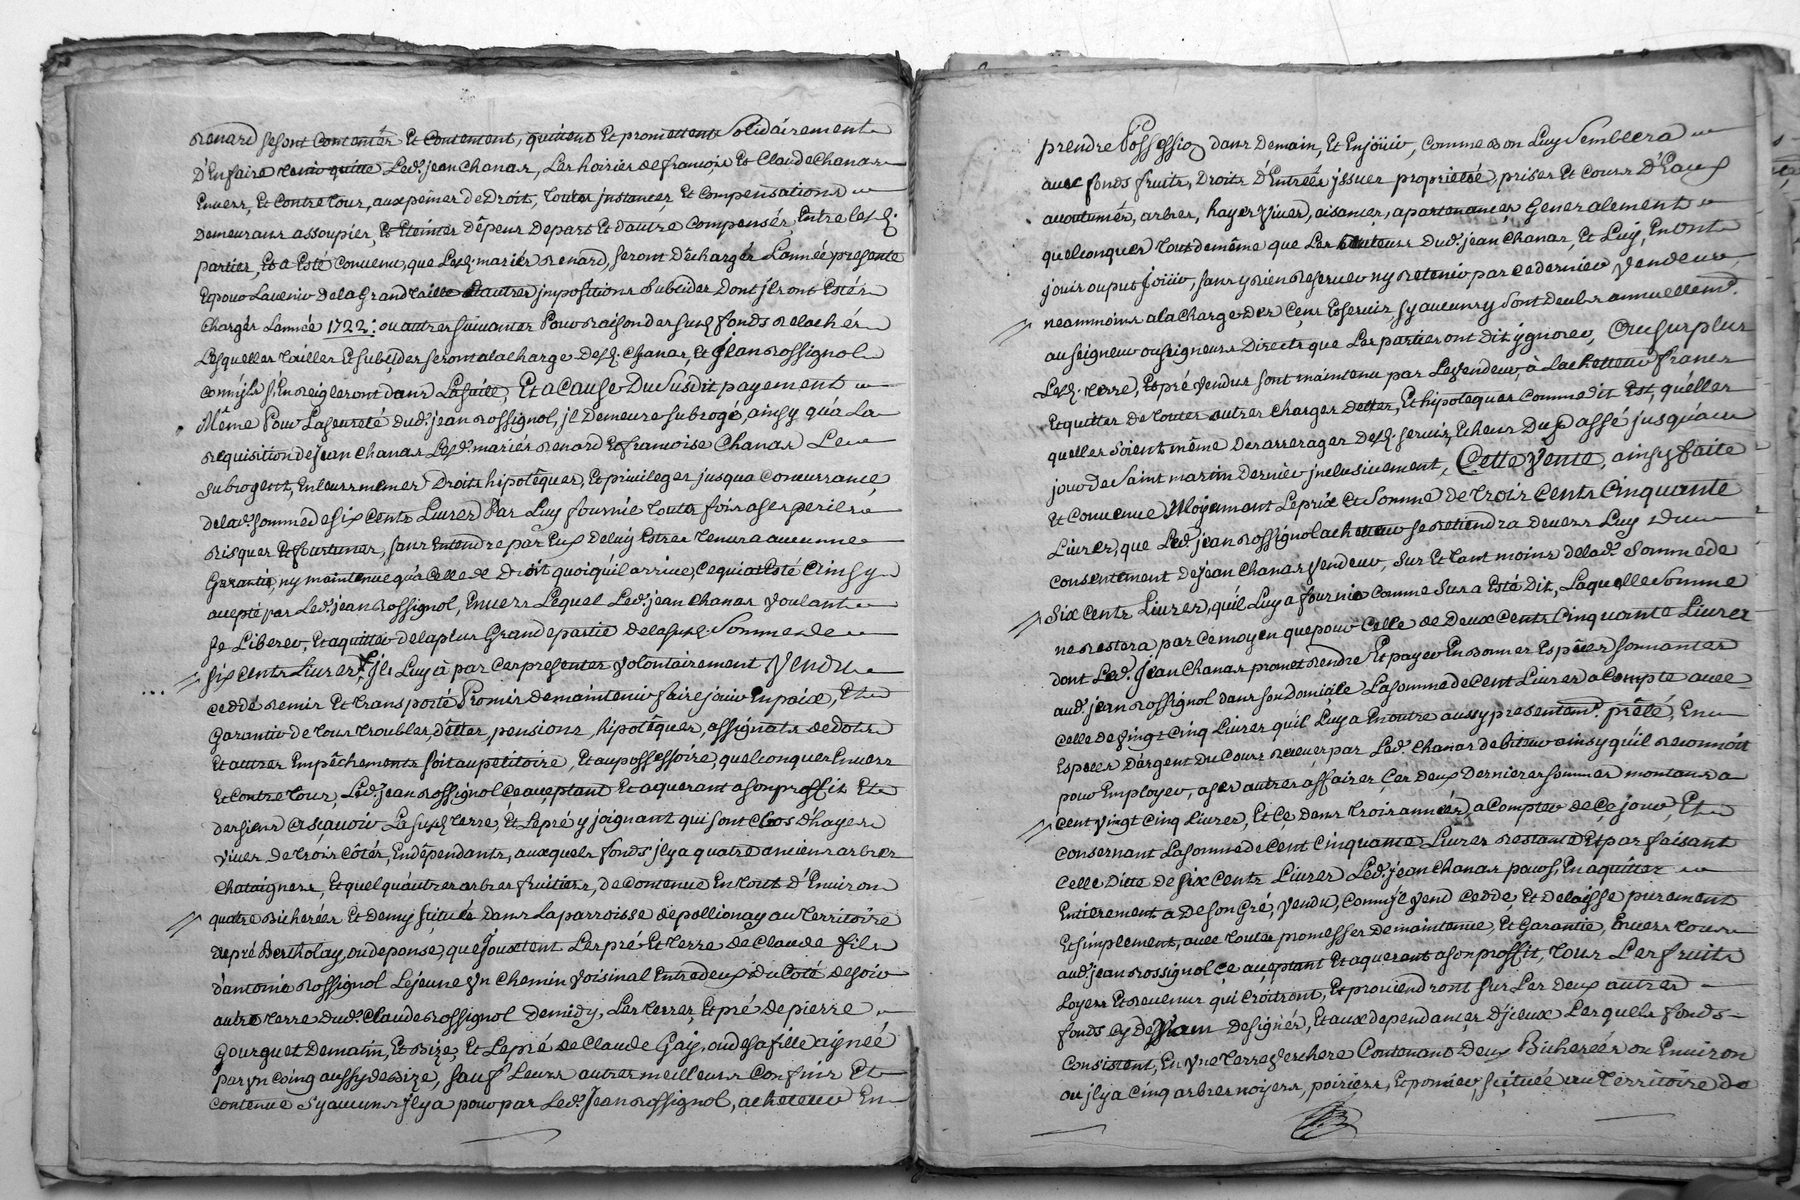 Renard se sont contentés Et Contentent, quittent Et promettent Solidairement
D'En faire tenir quitte Led. jean Chanas, Les hoiries de francois Et Claude Chanas
Envers, Et Contre tous, aux peines de Droit, toutes jnstances, Et Compensations
Demeurans assoupies, Et Eteintes dépens depart Et d'autre Compensés, Entre lesd.
parties, Et a Esté Convenu, que Lesd. mariés Renard, seront déchargés L'année presente
Et pour Lavenir de la Grand taille Et autres jmpositions Subcides Dont jls ont Estés
Chargés L'année 1722: ou autres suivantes Pour Raison des susd. fonds Relachés
Lesquelles tailles Et Subcides seront a la charge desd. Chanas, Et Jean Rossignol
Comm'jls s'En Reigleront dans La suite, Et a Cause Du Susdit payement
Même Pour La seureté dud. jean Rossignol, jl Demeure subrogé, ainsy qu'a La
Requisition de Jean Chanas Lesd. mariés Renard Et francoise Chanas Le
subrogent, En leurs mêmes Droits hipotêques, Et privileges jusqua Concurrance
de lad. somme de six Cents Livres Par Luy fournie toutes fois a ses perils
Risques Et fourtunes, sans Entendre par Eux de luy Estre tenus a aucunne
Garantie, ny maintenue qu'a Celle de Droit quoi qu'il arrive, Ce qui a Esté Ainsy
accepté par Led. jean Rossignol, Envers Lequel Led. jean Chanas Voulant
Se Liberer, Et aquitter de la plus Grande partie de la susd. Somme de
six Cents Livres, jl Luy à par Ces presentes Volontairement Vendu
Ceddé Remis Et transporté Promis de maintenir faire jouir En paix, Et
Garantir de tous troubles, dettes, pensions, hipotêques, assignats de dots
Et autres Empêchements soit au petitoire, Et au possessoire, quelconques Envers
Et Contre tous, Led. jean Rossignol Ce acceptant Et aquerant a son proffit Et
des siens Asçavoir La susd. terre, Et Le pré y joignant qui sont Clos d'hayes
Vives de trois Côtés, Endépendants, aux quels fonds jl y a quatre anciens arbres
Chataigners, Et quelqu'autres arbres fruitiers, de Contenue En tout d'Environ
quatre Bicherées Et Demy scituée dans La parroisse de pollionay au territoire
de pré Bertholay, ou deponse, que Jouxtent Les pré Et terre de Claude fils
d'antoine Rossignol Le jeune Vn Chemin Voisinal Entre deux du Côté de soir
autre terre dud. Claude Rossignol de midy, Les terres, Et pré de pierre
Gourguet de matin, Et Bize, Et Le pré de Claude Gay, ou de sa fille aynée
par Vn Coing aussy de Bize, sauf Leurs autres meilleurs Confins Et
Contenue s'y aucuns jl y a pour par Led. Jean Rossignol, acheteur En
prendre Possession dans Demain, Et En jouir, Comme Bon Luy Semblera
avec fonds fruits, Droits d'Entrées jssues proprietés, prises Et Cours D'Eaux
accoutumés, arbres, hayes Vives, aisances, apartenances Generalement
quelconques tout de même que Les Auteurs dud. jean Chanas, Et Luy, En ont
jouis ou put joüir, sans y Rien Reserver ny Retenir par Ce dernier Vendeur
neammoins a la Charge des Cens Et servis sy aucuns y sont deubs annuellemt.
au seigneur ou seigneurs Directs que Les parties ont dit jgnorer, Au surplus
Lesd. terre, Et pré Vendus sont maintenu par Le Vendeur, à Lachetteur francs
Et quittes de toutes autres charges dettes, Et hipoteques Comme dit Est, qu'elles
quelles soient même Des arrerages desd. servis Echeus Du passé jusqu'au
jour de Saint martin Dernier jnclusivement, Cette Vente, ainsy faite
Et Convenue Moyennant Le prix Et Somme de trois Cents Cinquante
Livres, que Led. jean Rossignol acheteur se Retiendra devers Luy Du
Consentement de Jean Chanas Vendeur, sur Et tant moins de lad. Somme de
six Cents Livres, qu'il Luy a fournie Comme sus a Esté Dit, Laquelle Somme
ne Restera, par Ce moyen que pour Celle de Deux Cents Cinquante Livres
dont Led. Jean Chanas promet Rendre Et payer En Bonnes Espêces sonnantes
aud. jean Rossignol dans son Domicile La somme de Cent Livres a Compte avec
Celle de Vingt Cinq Livres qu'il Luy a En outre aussy presentemt. prêté, En
Especes D'argent Du Cours Receues par Led. Chanas debiteur ainsy qu'il Reconnoit
pour Employer, a ses autres affaires, Ces deux Dernieres sommes montans a
Cent Vingt Cinq Livres, Et Ce dans trois années, a Compter de Ce jour, Et
Consernant La somme de Cent Cinquante Livres Restante Et par faisant
Celle Ditte de six Cents Livres Led. jean Chanas pour s'En aquitter
Entierement a De son Gré, Vendu, Comm'jl Vend Cedde, Et Delaisse purement
Et simplement, avec toutes promesses De maintenue, Et Garantie, Envers tous
aud. jean Rossignol Ce acceptant Et aquerent a son proffit, tous Les fruits
Loyers Et Revenus qui Croitront, Et proviendront sur Les deux autres
fonds Cy de Vam designés, Et aux dependances d'jceux Lesquels fonds
Consistent, En Vne terre Verchere Contenant Deux Bicherées ou Environ
ou jl y a Cinq arbres noyers, poiriers, Et pomier, scituée au territoire de